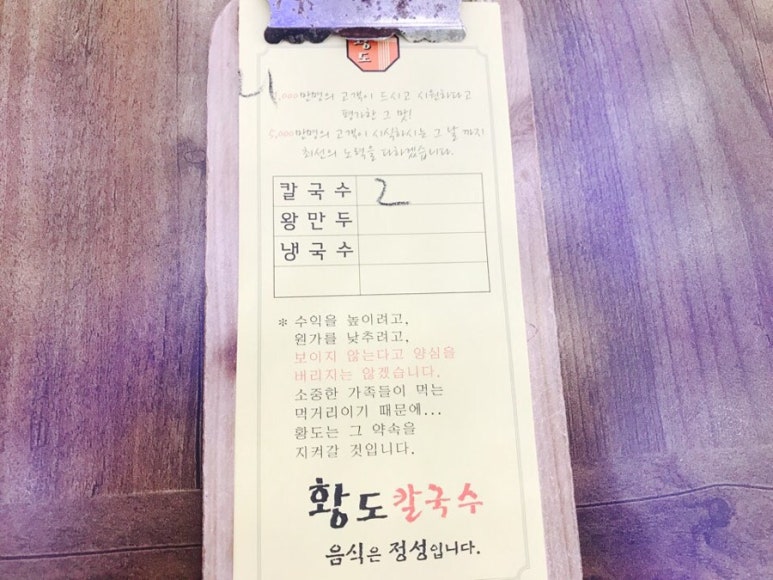 황도
,000만명의 고객이 드시고 시원하다고
평가한 그 맛!
5,000만명의 고객이 시식하시는 그 날 까지
최선의 노력을 다하겠습니다.
칼국수 2
왕만두
냉국수
* 수익을 높이려고,
원가를 낮추려고,
보이지 않는다고 양심을
버리지는 않겠습니다.
소중한 가족들이 먹는
먹거리이기 때문에...
황도는 그 약속을
지켜갈 것입니다.
황도칼국수
음식은 정성입니다.